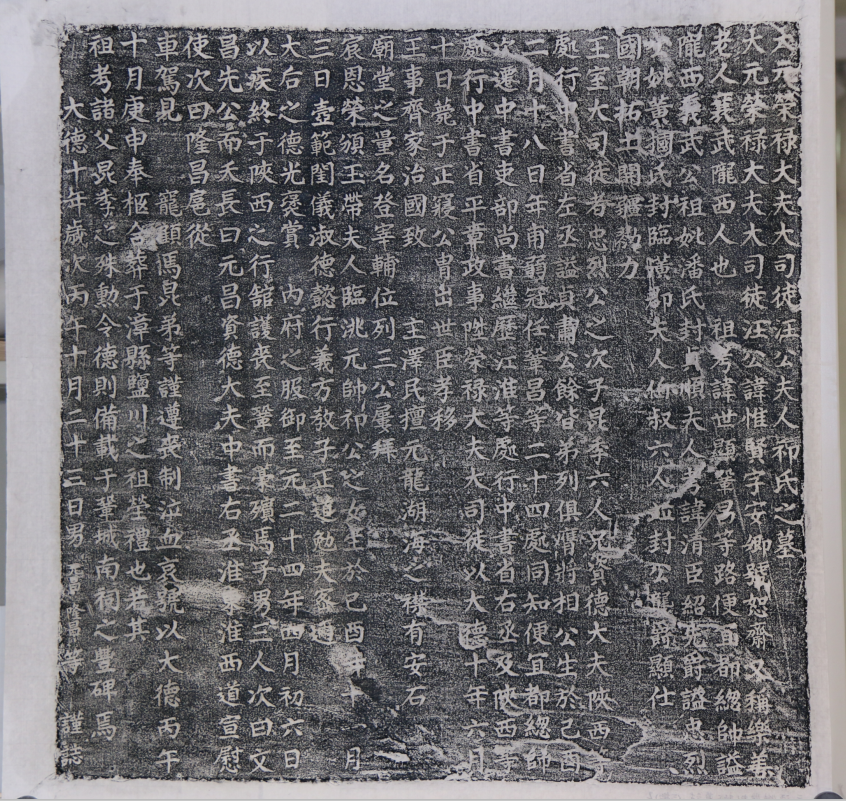 大元榮祿大夫大司徒汪公夫人祁氏之墓
大元榮祿大夫大司徒汪公諱惟賢字安卿號恕齋又稱樂善
老人義武隴西人也 祖考諱世顯鞏昌等路便宜都總帥諡
隴西義武公祖妣潘氏封 順夫人 諱清臣紹先爵諡忠烈
公妣黃摑氏封臨潢郡夫人伯叔六人並封公 爵顯仕
國朝拓土開疆 力
王室大司徒者忠烈公之次子昆季六人兄資德大夫陝西
處行中書省左丞諡貞肅公餘皆弟列俱膺將相公生於己酉
二月十八日年甫弱冠任鞏昌等二十四處同知便宜都總帥
次遷中書吏部尚書繼歷江淮等處行中書省右丞及陝西等
處行中書省平章政事陞榮祿大夫大司徒以大德十年六月
十日薨于正寢公胄出世臣孝移
王事齊家治國致 主澤民擅元龍湖海之 有安石
廟堂之量名登宰輔位列三公屢拜
宸恩榮頒玉帶夫人臨洮元帥祁公之女生於己酉年十 月
三日壼範閨儀淑德懿行義方敎子正道勉夫 通
太后之德光褒賞 內府之服御至元二十四年四月初六日
以疾終于陝西之行舘護喪至鞏而 殯焉子男三人次曰文
昌先公而夭長曰元昌資德大夫中書右丞淮東淮西道宣慰
使次曰隆昌扈從
車駕見 龍顯焉昆弟等謹遵喪制泣血哀號以大德丙午
十月庚申奉柩合葬于漳縣鹽川之祖塋禮也若其
祖考諸父昆季之殊勳令德則備載于鞏城南祠之豐碑焉
大德十年歲次丙午十月二十三日男 等 謹誌